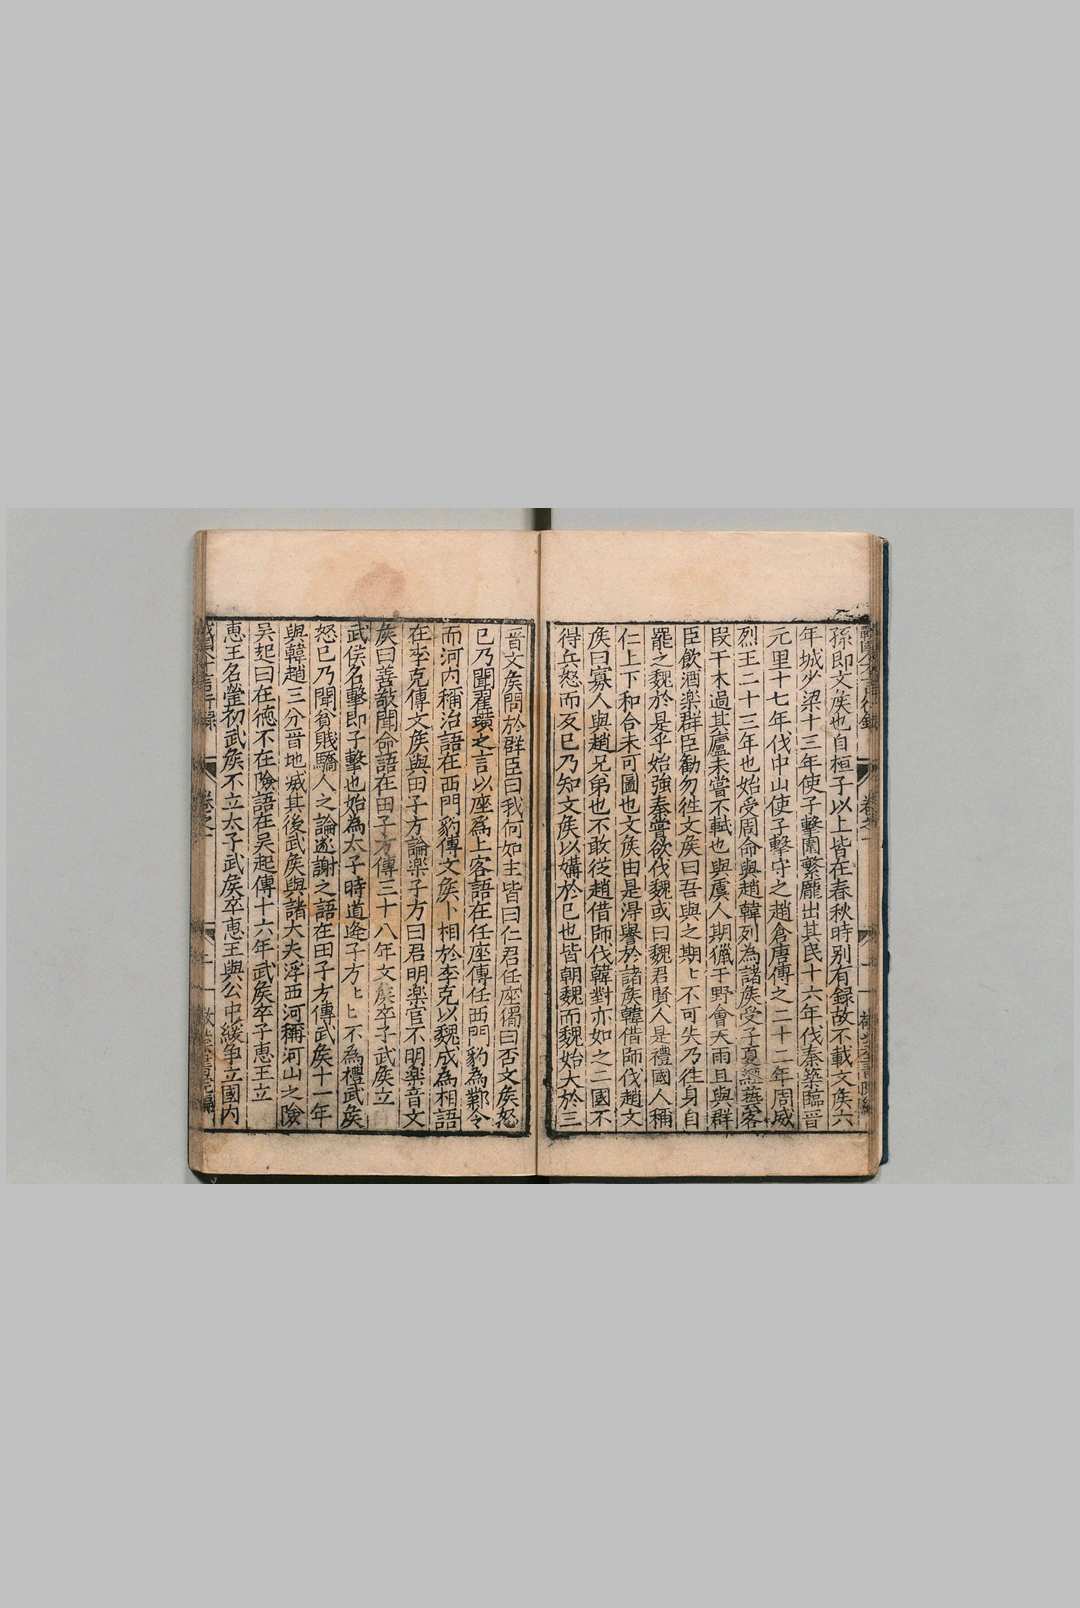 孫即文矦也自桓子以上皆在春秋時别有録故不載文矦六
年城少梁十三年使子擊圍繁龐出其民十六年伐秦築臨晉
元里十七年伐中山使子擊守之趙倉唐傅之二十二年周威
烈王二十三年也始受周命與趙韓列為諸矦受子夏經藝客
段干木過其廬未嘗不軾也與虞人期獵于野會天雨且與群
臣飲酒楽群臣勸勿徃文矦曰吾與之期ヒ不可失乃徃身自
罷之魏於是乎始強秦嘗欲伐魏或曰魏君賢人是禮國人稱
仁上下和合未可圖也文矦由是淂譽於諸矦韓借師伐趙文
矦曰寡人與趙兄弟也不敢従趙借師伐韓對亦如之二國不
得兵怒而反已乃知文矦以媾於已也皆朝魏而魏始大於三
晉文矦問於群臣曰我何如主皆曰仁君任座獨曰否文矦怒
已乃聞翟璜之言以座爲上客語在任座傳任西門豹為鄴令
而河内稱治語在西門豹傳文矦卜相於李克以魏成為相語
在李克傳文矦與田子方論楽子方曰君明楽官不明楽音文
矦曰善敬聞命語在田子方傳三十八年文矦卒子武矦立
武侯名擊即子擊也始為太子時道逄子方ヒヒ不為禮武矦
怒已乃聞貧賎驕人之論遂謝之語在田子方傳武矦十一年
與韓趙三分晋地滅其後武矦與諸大夫浮西河稱河山之險
吳起曰在徳不在險語在吴起傳十六年武矦卒子恵王立
恵王名瑩初武矦不立太子武矦卒恵王與公中緩争立國内